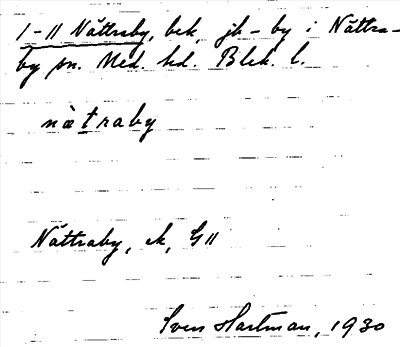 1-11 Nättraby, bek, jb-by i Nättra-
by sn. Med. hd. Blek. l.
nàtraby
Nättraby, ek, G11
Sven Hartman, 1930